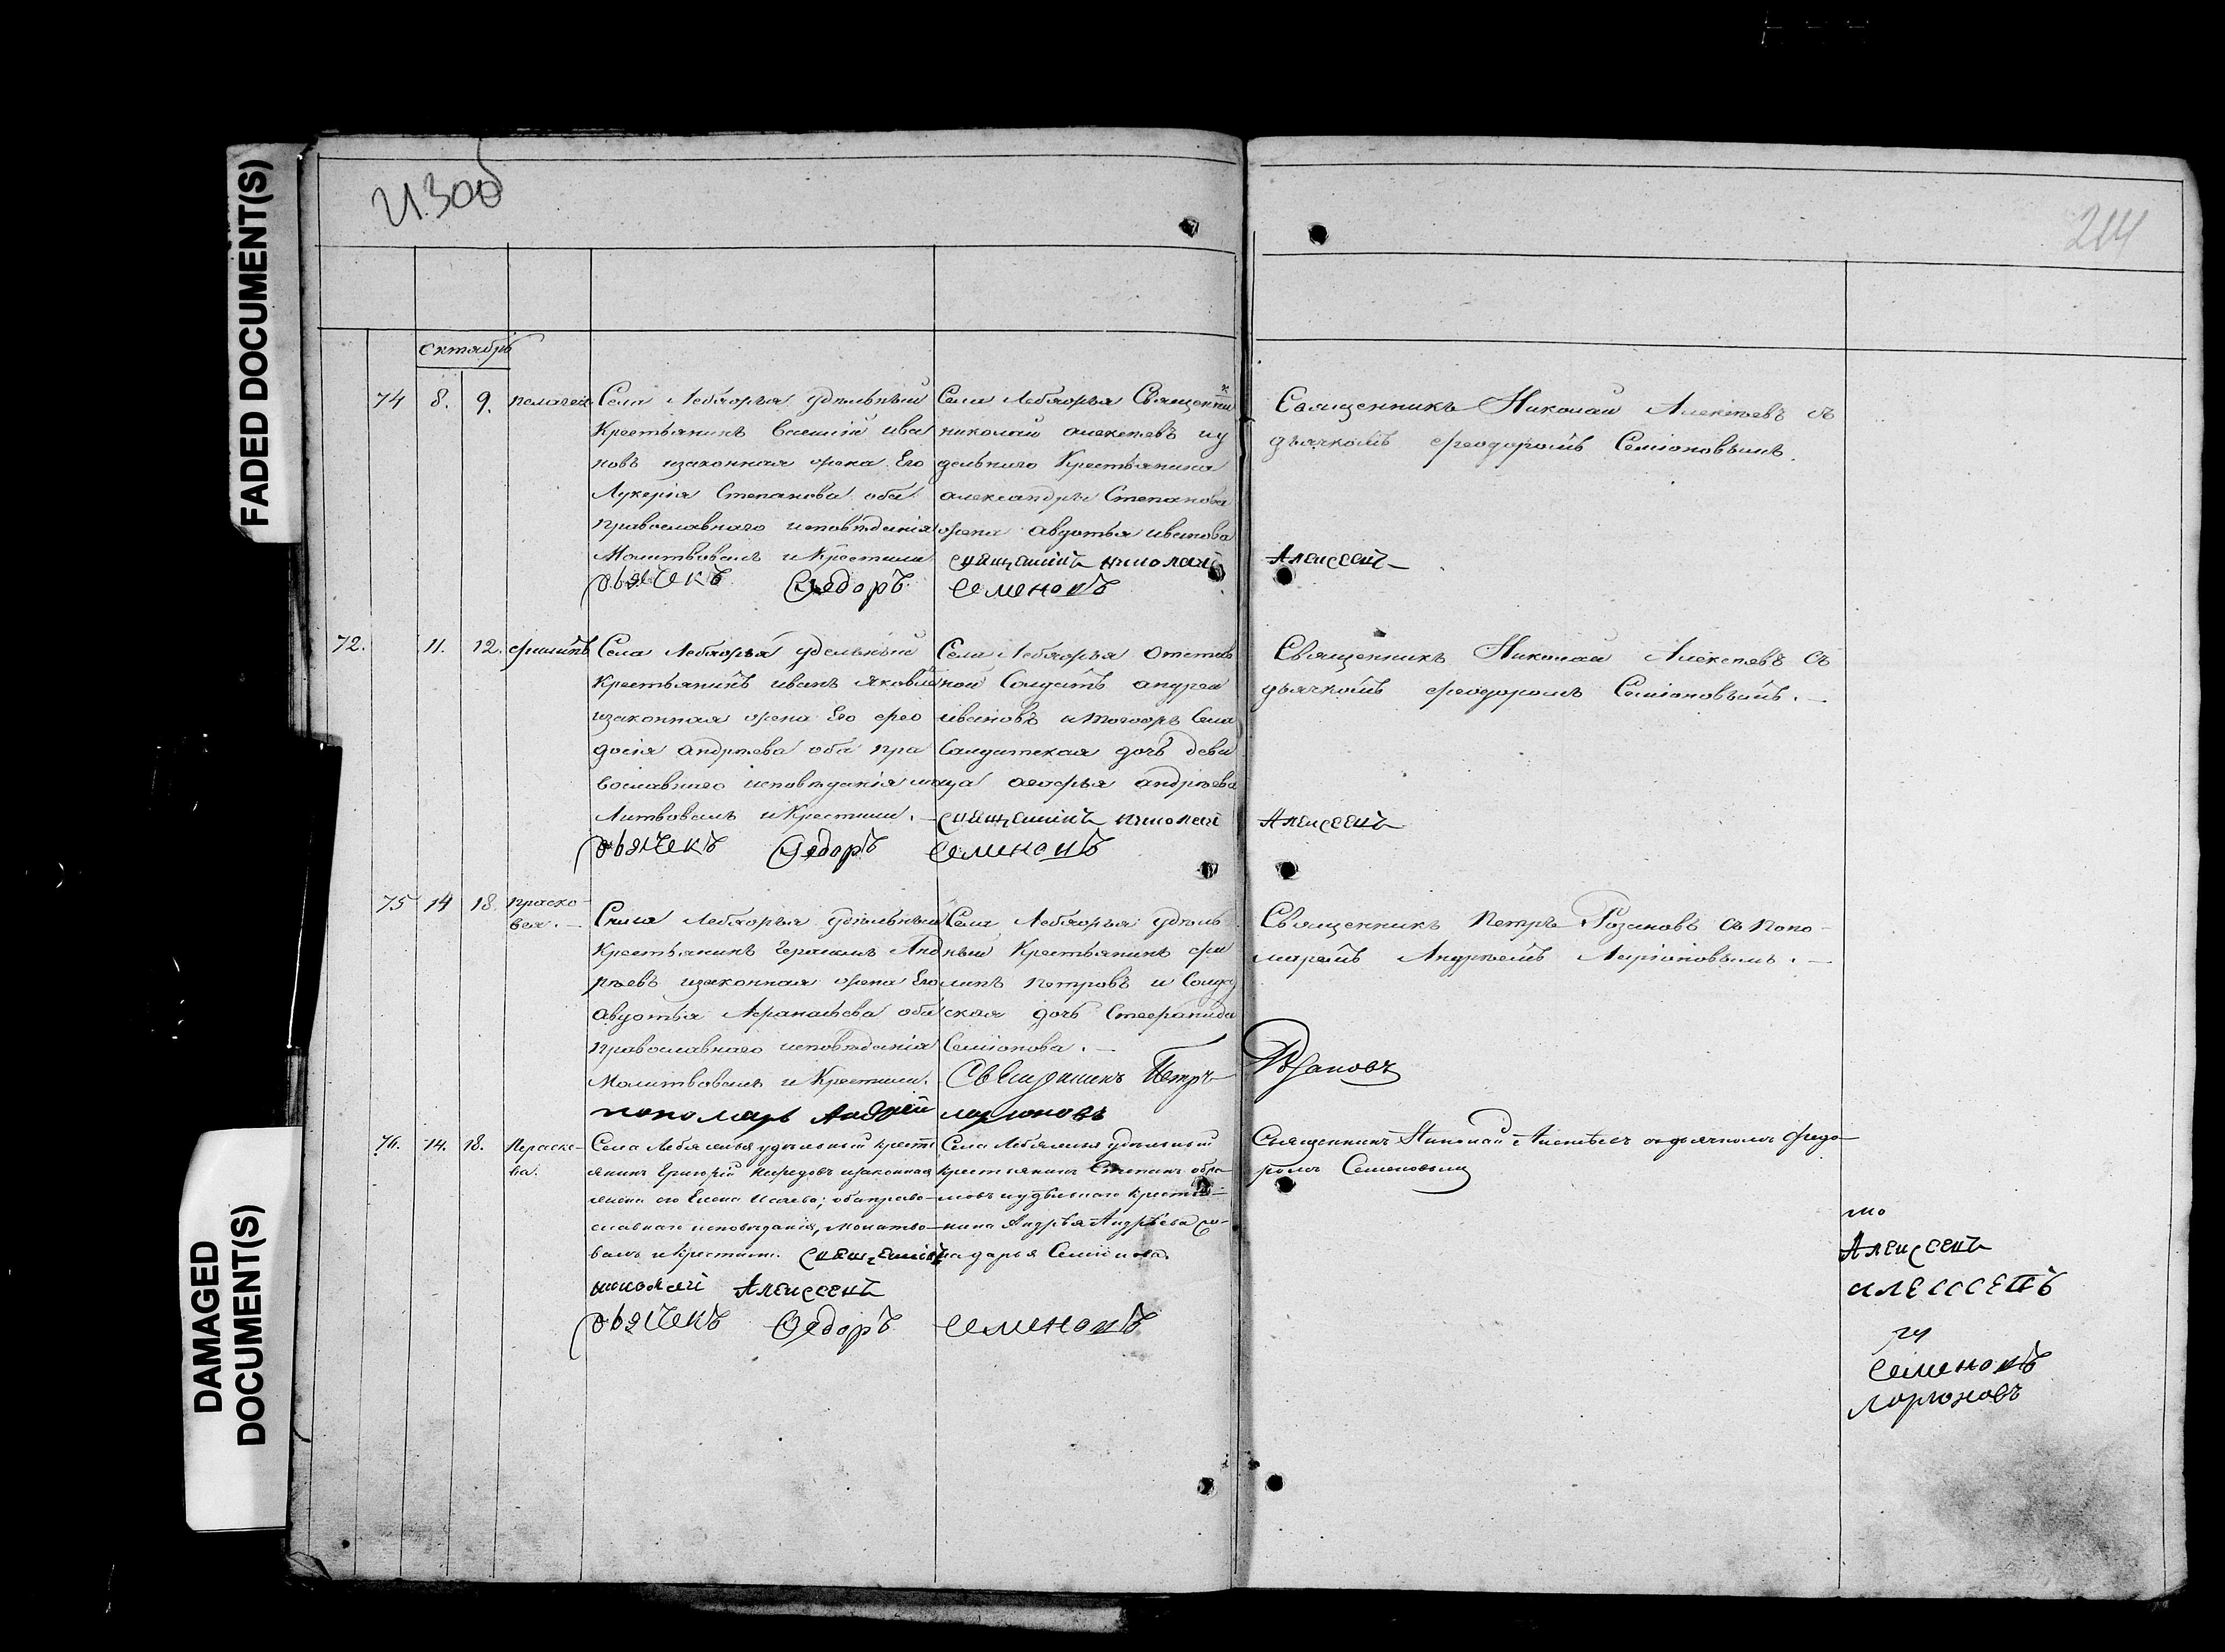 FADED DOCUMENT(S)
DAMAGED DOCUMENT(S)
214
Октябрь
74 8. 9. Пелагея
Села Лебяжья удельный
Крестьянинъ Василий Ива
новъ изаконная жена Его
Лукерiя Степанова оба
православнаго исповѣданiя
Молитвовалъ и Крестилъ
Села Лебяжья Священни
николай алексѣевъ иу
дельнаго Крестьянина
александры Степанова
жена авдотья иванова
священникъ николай
дьячекъ Федоръ Семеновъ
Священникъ Николай Алексѣевъ съ
дьячкомъ феодоромъ Семiоновымъ.
Алексеевъ
72. 11. 12. филипъ
Села Лебяжья удельный
Крестьянинъ иванъ Яковле
изаконная жена Его фео
досiя андрѣева оба пра
вославнаго исповѣданiя мо
литвовалъ и Крестилъ.
Села Лебяжья Отстав
ной Солдатъ андрей
ивановъ и тогожъ Села
Салдатская дочь деви
ца агафья андрѣева
священникъ николай
дьячекъ Федоръ Семеновъ
Священникъ Николай Алексѣевъ Съ
дьячкомъ феодоромъ Семiоновымъ.
Алексеевъ
75 14 18. Праско-
вья.
Села Лебяжья удѣльный
Крестьянинъ Герасимъ Анд
рѣевъ изаконная жена Его
Авдотья Афанасьева оба
православнаго исповѣданiя
Молитвовалъ и Крестилъ.
Села Лебяжья удѣль
ный Крестьянинъ фи
липъ Петровъ и Солда
ская дочь Стефанида
Семiонова.
Священникъ Петръ
пономарь Андрей ларионовъ
Священникъ Петръ Розановъ съ Поно-
маремъ Андрѣемъ Ларiоновымъ.
Розановъ
76. 14. 18. Параске-
ва.
Села Лебяжья удѣльный крест
янинъ Григорiй изаконная
жена его Елена Исаева; оба право-
славнаго исповѣданiя, молитво-
валъ и крестилъ. священникъ
николай Алексеевъ
Села Лебяжья удѣльный
крестьянинъ Степанъ
иудѣльнаго крестья-
нина Андрѣя Андрѣева
дарья Семiонова
дьячекъ Федоръ Семеновъ
Священникъ Николай Алексѣевъ съ дьячкомъ Федо-
ромъ Семеновымъ
Алексеевъ
алексеевъ
Семеновъ
Ларионовъ